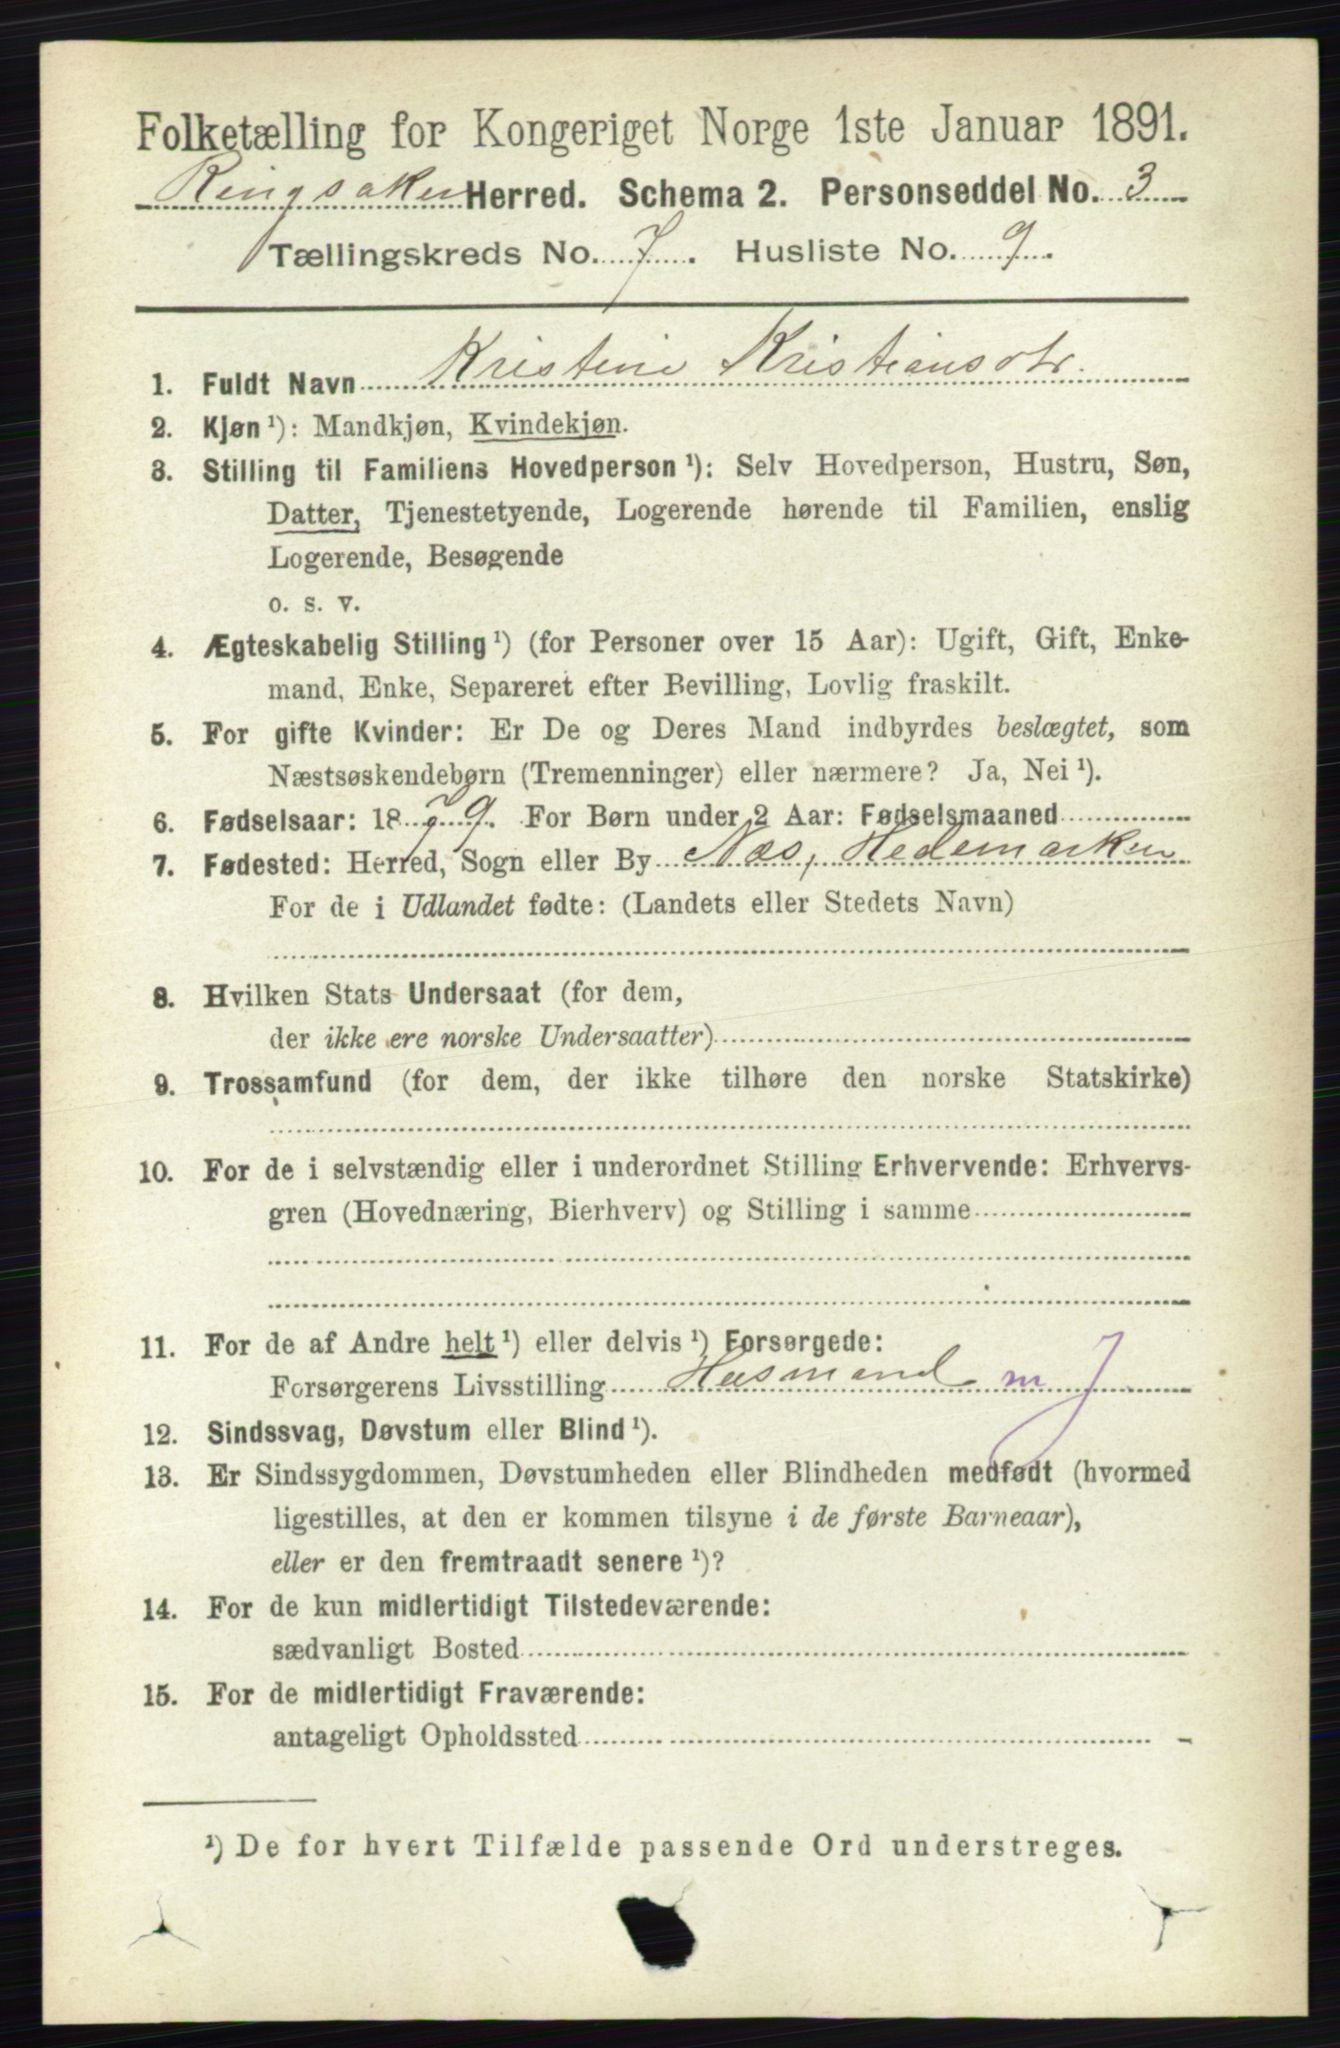 Folketælling for Kongeriget Norge 1ste Januar 1891.
Ringsaker Herred. Schema 2. Personseddel No. 3
Tællingskreds No. 7. Husliste No. 9.
1. Fuldt Navn Kristine Kristiansdtr.
2. Kjøn ¹): Mandkjøn, Kvindekjøn.
3. Stilling til Familiens Hovedperson ¹): Selv Hovedperson, Hustru, Søn,
Datter, Tjenestetyende, Logerende hørende til Familien, enslig
Logerende, Besøgende
o. s. v.
4. Ægteskabelig Stilling ¹) (for Personer over 15 Aar): Ugift, Gift, Enke-
mand, Enke, Separeret efter Bevilling, Lovlig fraskilt.
5. For gifte Kvinder: Er De og Deres Mand indbyrdes beslægtet, som
Næstsøskendebørn (Tremenninger) eller nærmere? Ja, Nei ¹).
6. Fødselsaar: 1879. For Børn under 2 Aar: Fødselsmaaned
7. Fødested: Herred, Sogn eller By Næs, Hedemarken
For de i Udlandet fødte: (Landets eller Stedets Navn)
8. Hvilken Stats Undersaat (for dem,
der ikke ere norske Undersaatter)
9. Trossamfund (for dem, der ikke tilhøre den norske Statskirke)
10. For de i selvstændig eller i underordnet Stilling Erhvervende: Erhvervs-
gren (Hovednæring, Bierhverv) og Stilling i samme
11. For de af Andre helt ¹) eller delvis ¹) Forsørgede:
Forsørgerens Livsstilling Husmand m J
12. Sindssvag, Døvstum eller Blind ¹).
13. Er Sindssygdommen, Døvstumheden eller Blindheden medfødt (hvormed
ligestilles, at den er kommen tilsyne i de første Barneaar),
eller er den fremtraadt senere ¹)?
14. For de kun midlertidigt Tilstedeværende:
sædvanligt Bosted
15. For de midlertidigt Fraværende:
antageligt Opholdssted
¹) De for hvert Tilfælde passende Ord understreges.